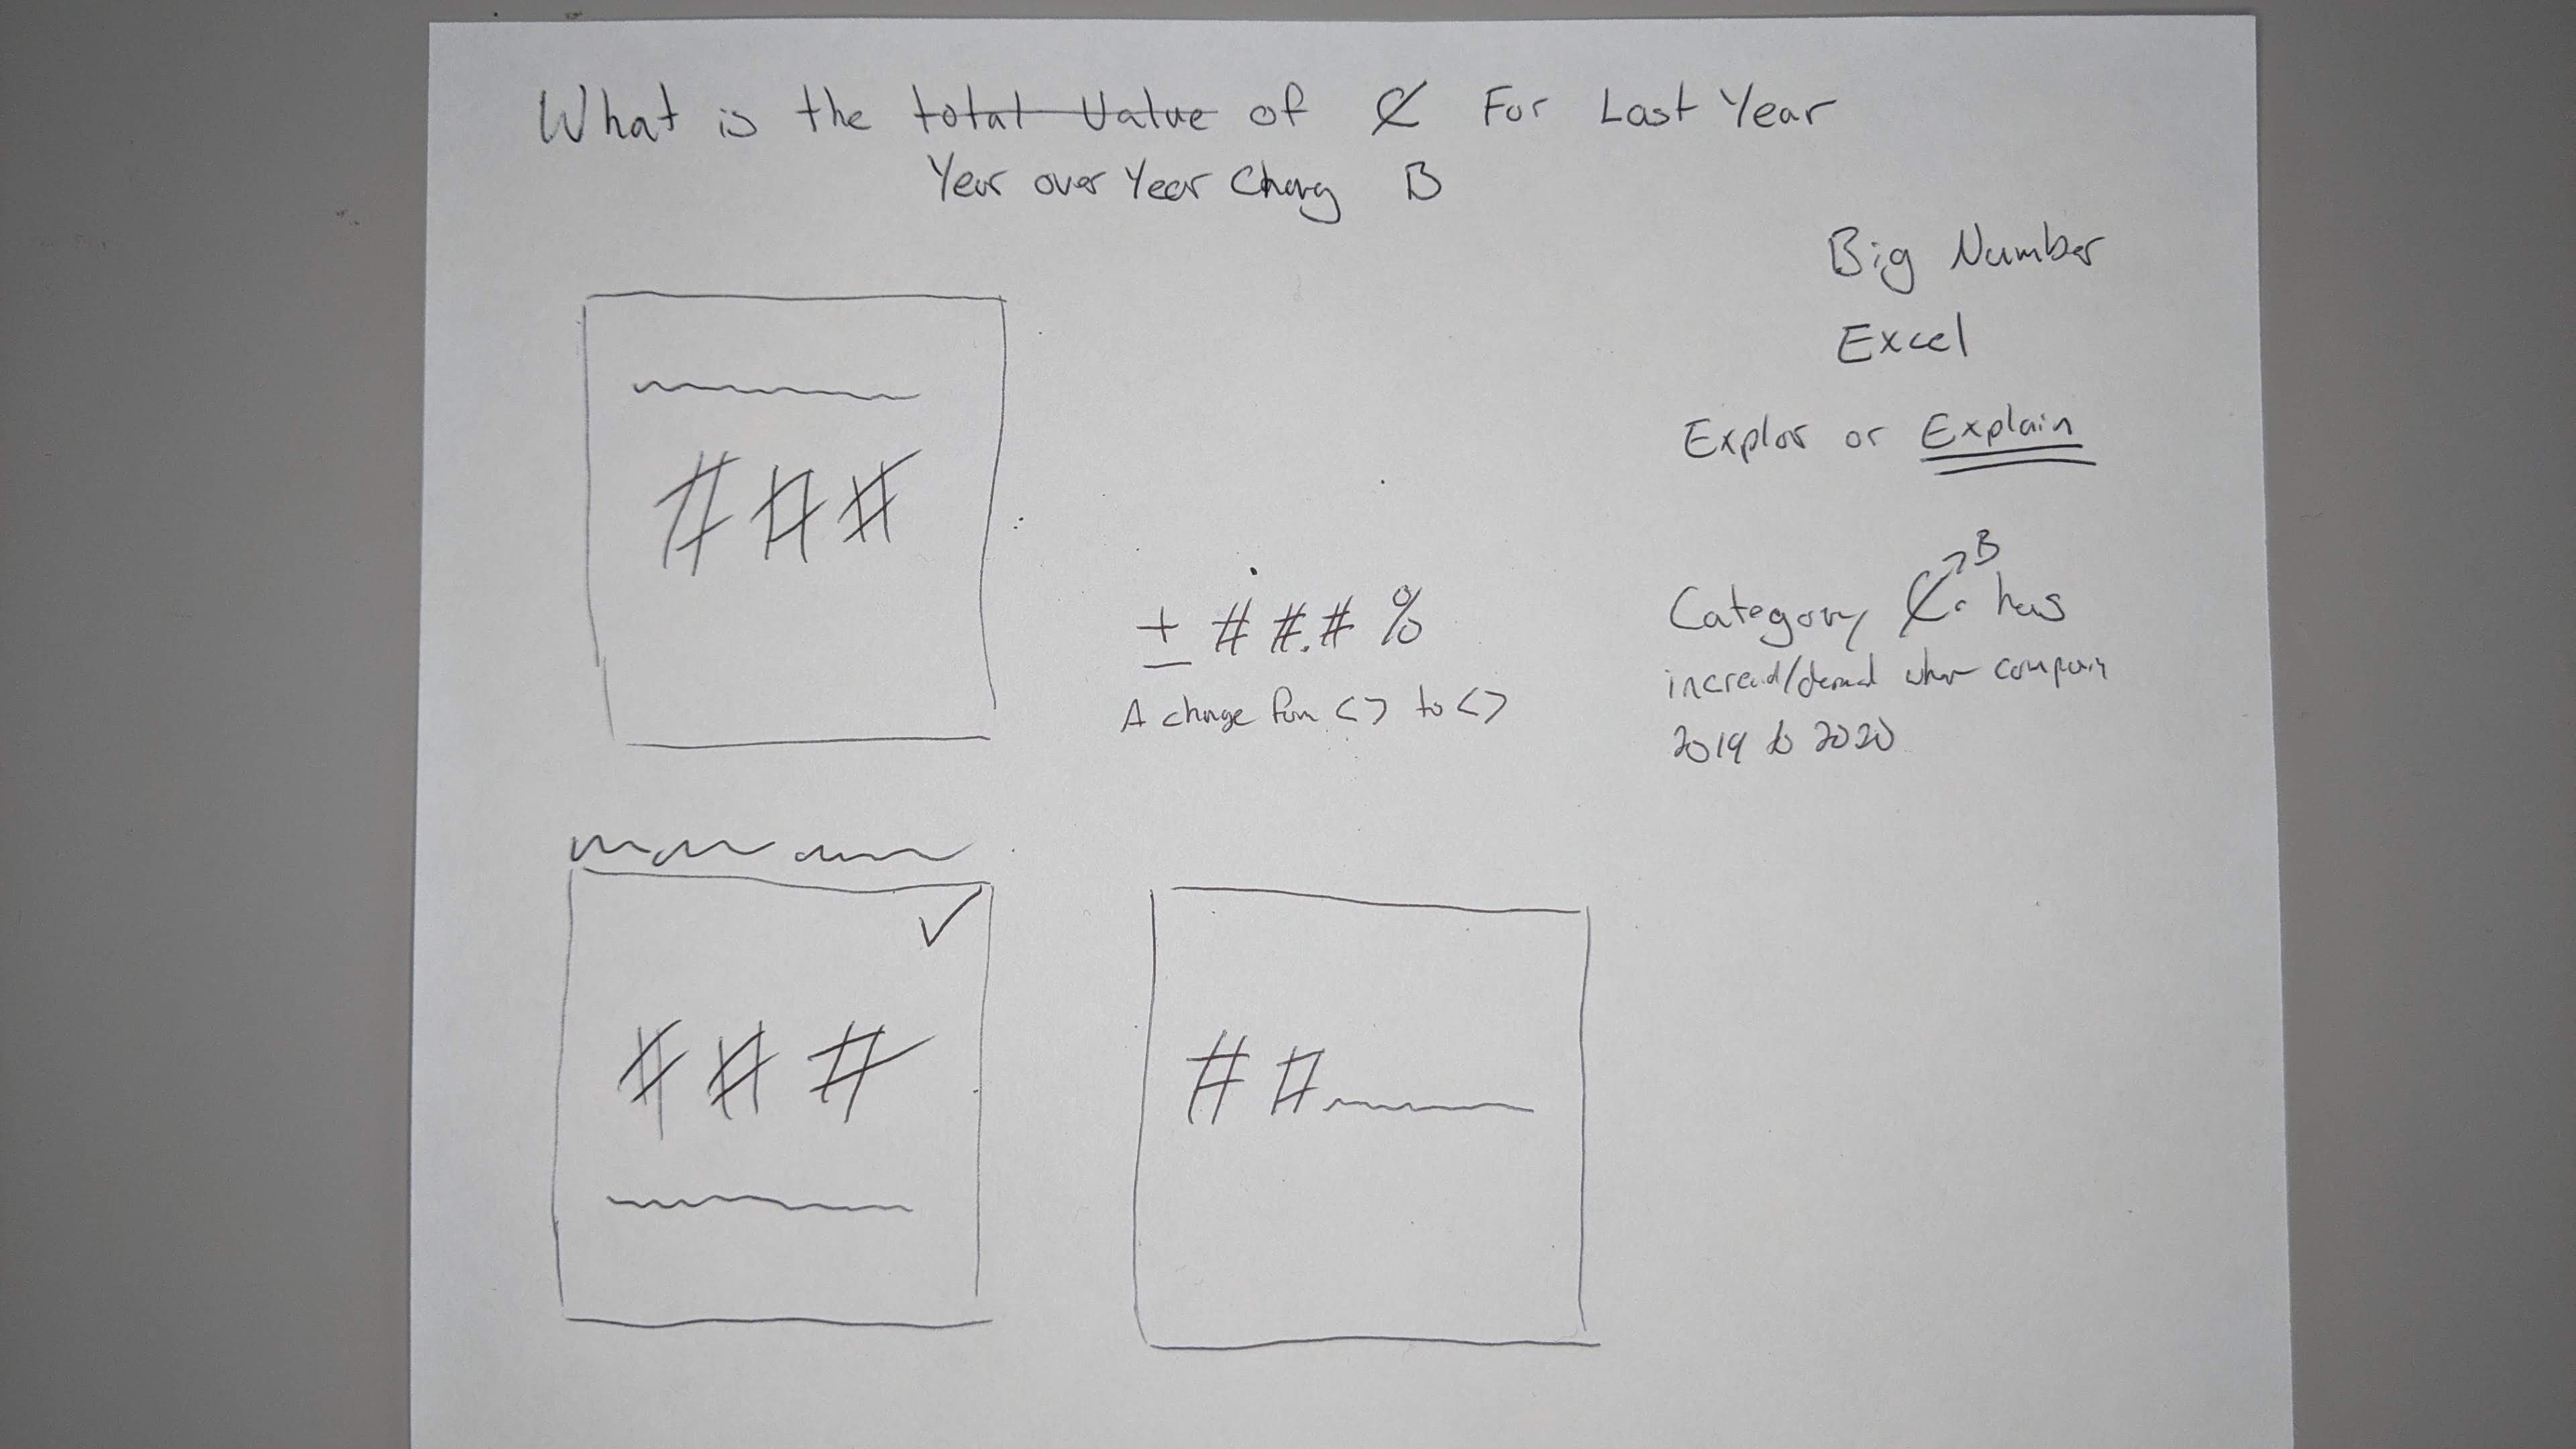 What is the total Value of C For Last Year
Year over Year Chang B
Big Number
Excel
Explor or Explain
# # #
± # #.# %
A change from <> to <>
B
Category C. has
increasd/decresd when comparing
2019 to 2020
✓
# # #
# #